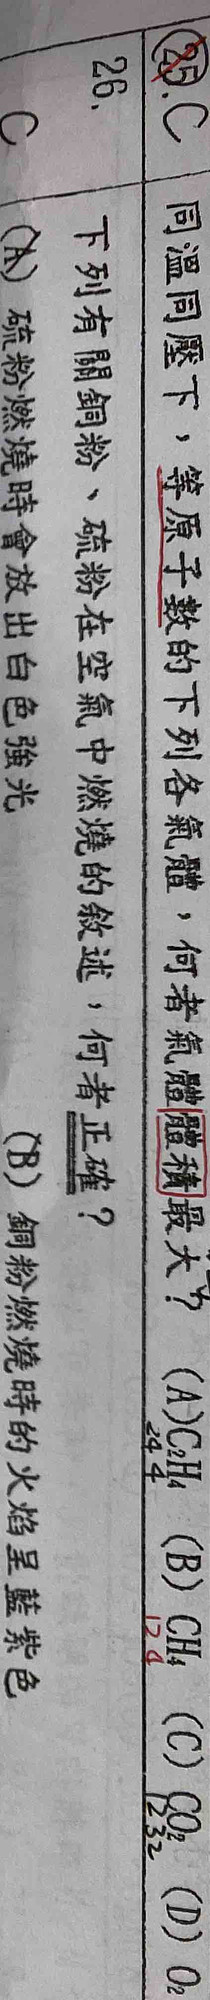 25. C 同溫同壓下，等原子數的下列各氣體，何者氣體體積最大？ (A) C₂H₄ (B) CH₄ (C) CO₂ (D) O₂
24 4 12 4 12 32
26. 下列有關銅粉、硫粉在空氣中燃燒的敘述，何者正確？
C (A) 硫粉燃燒時會放出白色強光 (B) 銅粉燃燒時的火焰呈藍紫色